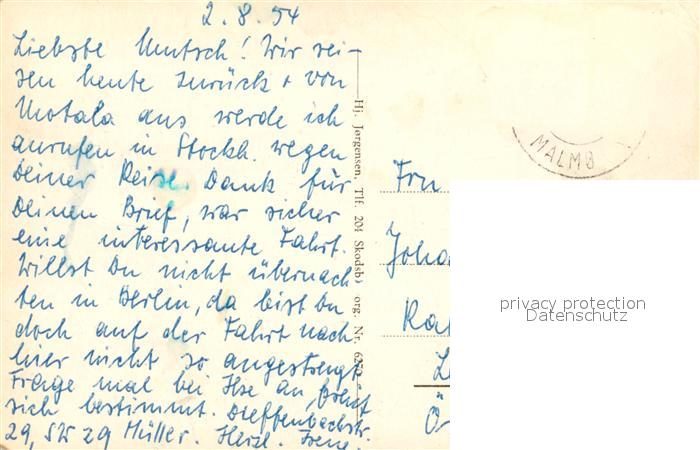 2.8.54
Liebste Mutsch! Wir rei-
sen heute zurück + von
Motala aus werde ich
anrufen in Stockh. wegen
Deiner Reise. Dank für
Deinen Brief, war sicher
eine interessante Fahrt.
Willst Du nicht übernach
ten in Berlin, da bist Du
doch auf der Fahrt nach
hier nicht so angestrengt.
Frage mal bei Ilse an,
sich bestimmt. Dieffenbachstr.
29, SW 29 Müller. Herzl.
Hj. Jørgensen, Tlf. 204 Skodsb) org. Nr.
MALMÖ
Frau
Joha
Ra
Ö
privacy protection
Datenschutz